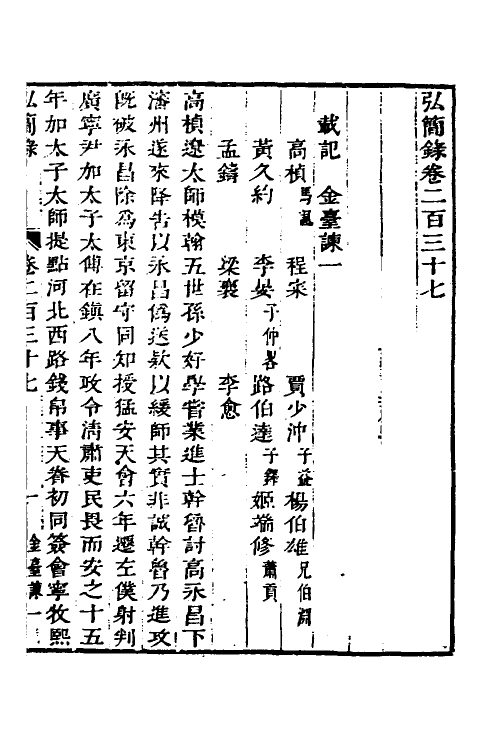 弘簡錄卷二百三十七
載記 金臺諫一
高楨 馬諷 程寀 賈少沖 子益 楊伯雄 兄伯淵
黃久約 李晏 子仲畧 路伯達 子鐸 姬端修 蕭貢
孟鑄 梁襄 李愈
高楨遼太師模翰五世孫少好學嘗業進士幹魯討高永昌下
瀋州遂來降告以永昌僞送欵以緩師其實非誠幹魯乃進攻
既破永昌除爲東京留守同知授猛安天會六年遷左僕射判
廣寧尹加太子太傅在鎮八年政令清肅吏民畏而安之十五
年加太子太師提點河北西路錢帛事天眷初同簽會寧牧熙
弘簡錄 卷二百三十七 一 金臺諫一